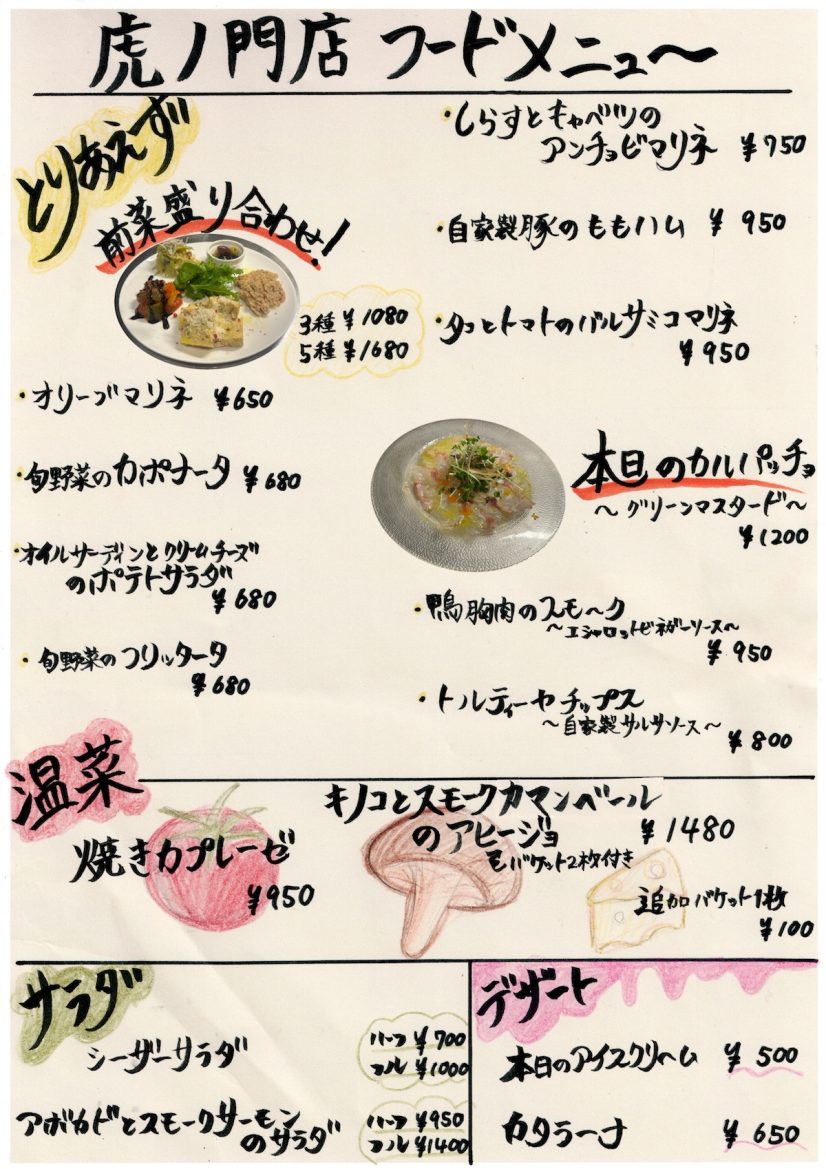 虎ノ門店 フードメニュ～
とりあえず
前菜盛り合わせ!
3種 ¥1080
5種 ¥1680
・オリーブマリネ ¥650
・旬野菜のカポナータ ¥680
・オイルサーディンとクリームチーズ
のポテトサラダ
¥680
・旬野菜のフリッタータ
¥680
・しらすとキャベツの
アンチョビマリネ ¥750
・自家製豚のももハム ¥950
・タコとトマトのバルサミコマリネ
¥950
本日のカルパッチョ
～グリーンマスタード～
¥1200
・鴨胸肉のスモーク
～エシャロットビネガーソース～
¥950
・トルティーヤチップス
～自家製サルサソース～
¥800
温菜
焼きカプレーゼ
¥950
キノコとスモークカマンベール
のアヒージョ ¥1480
バケット2枚付き
追加バケット1枚
¥100
サラダ
シーザーサラダ
ハーフ ¥700
フル ¥1000
アボカドとスモークサーモン
のサラダ
ハーフ ¥950
フル ¥1400
デザート
本日のアイスクリーム ¥500
カタラーナ ¥650